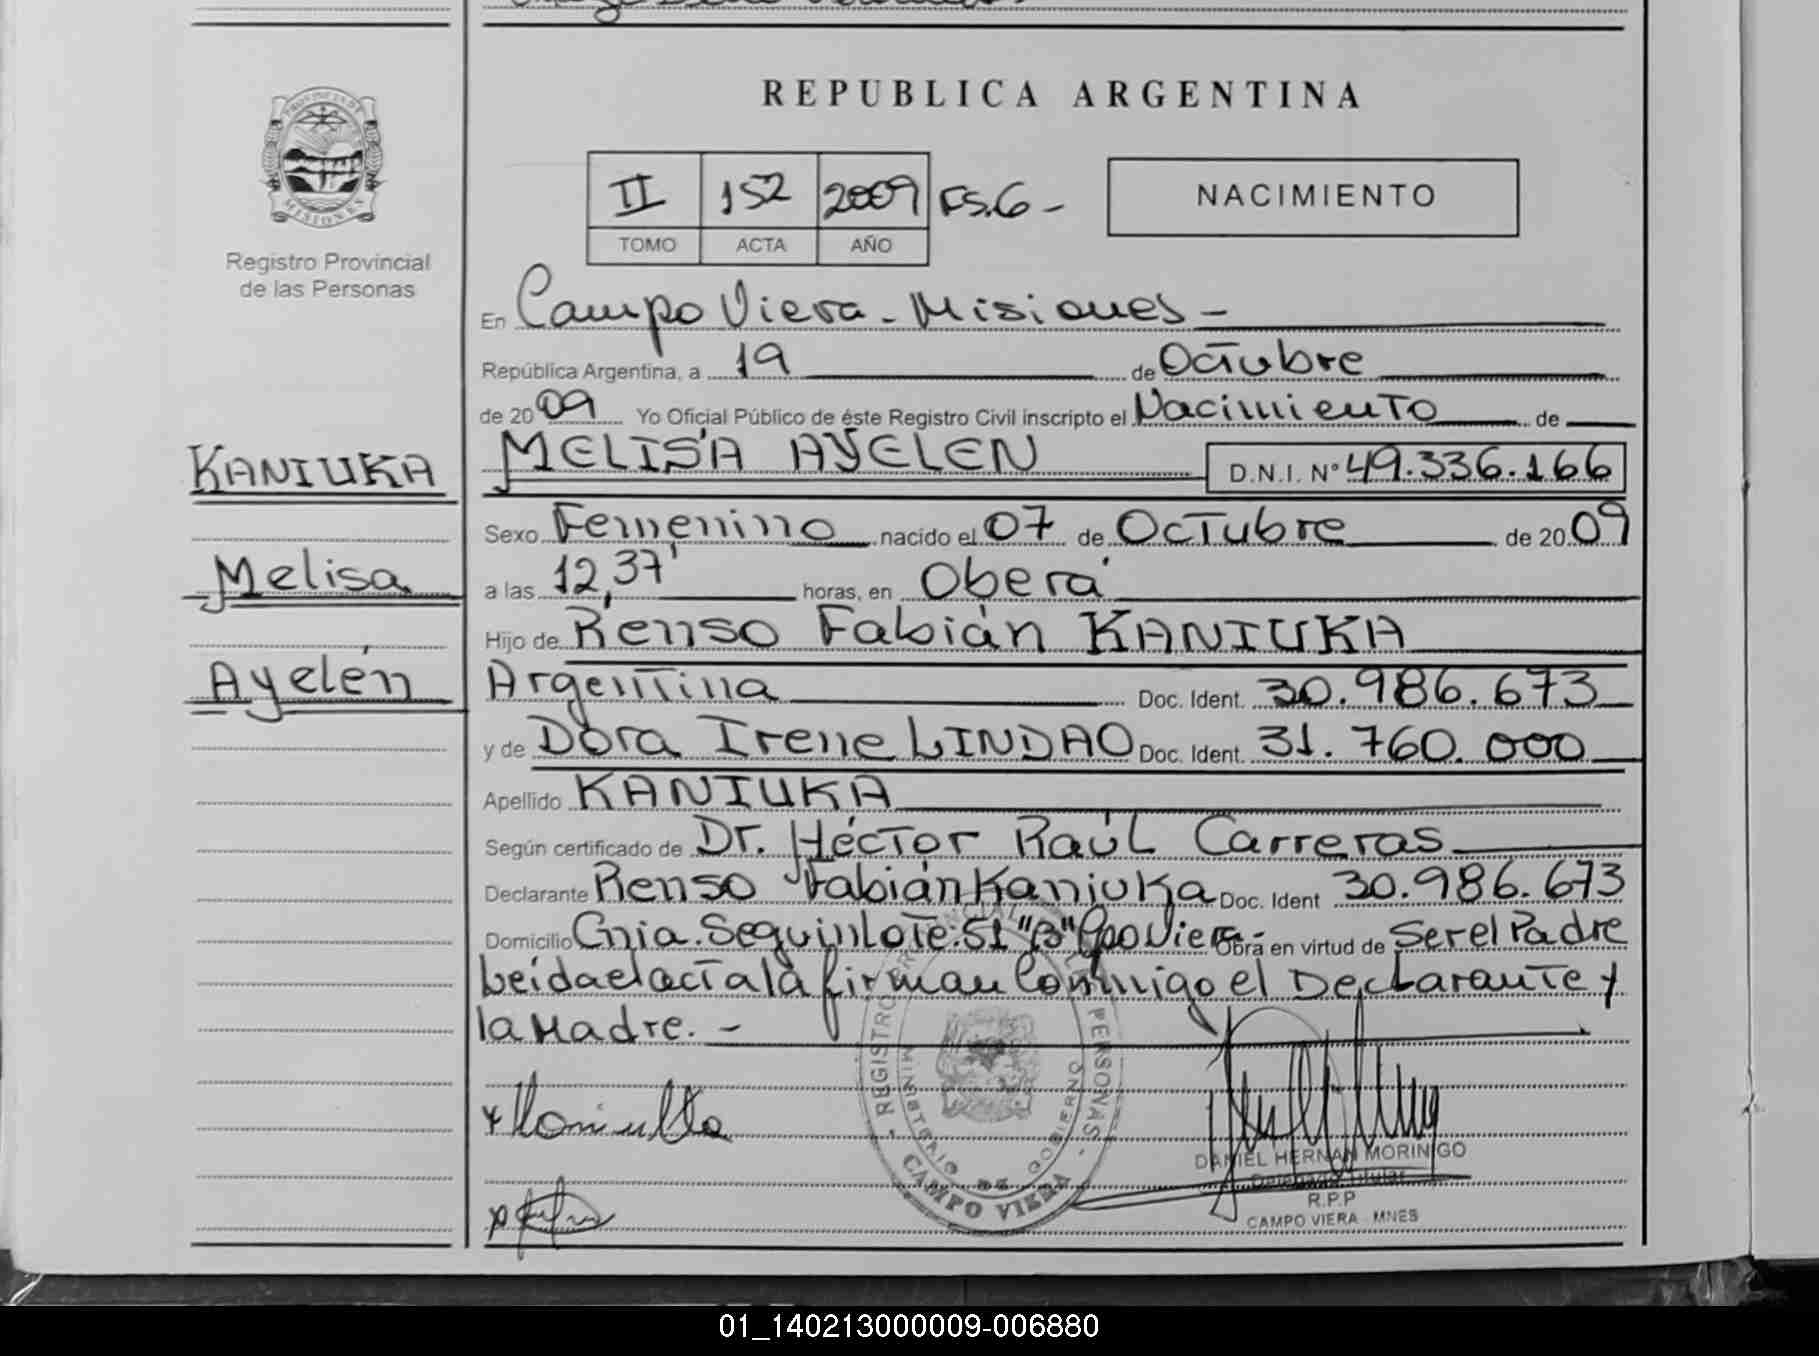 REPUBLICA ARGENTINA
PROVINCIA DE MISIONES
Registro Provincial
de las Personas
II 152 2009 FS.6 -
TOMO ACTA AÑO
NACIMIENTO
En Campo Viera - Misiones -
República Argentina, a 19 de Octubre
de 2009 Yo Oficial Público de éste Registro Civil inscripto el Nacimiento de
KANIUKA
Melisa
Ayelén
MELISA AYELEN D.N.I. Nº 49.336.166
Sexo Femenino nacido el 07 de Octubre de 2009
a las 12,37' horas, en Oberá
Hijo de Renso Fabián KANIUKA
Argentina Doc. Ident. 30.986.673
y de Dora Irene LINDAO Doc. Ident. 31.760.000
Apellido KANIUKA
Según certificado de Dr. Héctor Raúl Carreras
Declarante Renso Fabián Kaniuka Doc. Ident 30.986.673
Domicilio Cnia. Seguin Lote: 51 "B" Cpo Viera - Obra en virtud de Ser el Padre
Leída el acta la firman Conmigo el Declarante y
la Madre. -
REGISTRO PROVINCIAL DE LAS PERSONAS
MINISTERIO DE GOBIERNO
CAMPO VIERA
DANIEL HERNAN MORINIGO
Delegado Titular
R.P.P
CAMPO VIERA - MNES
01_140213000009-006880